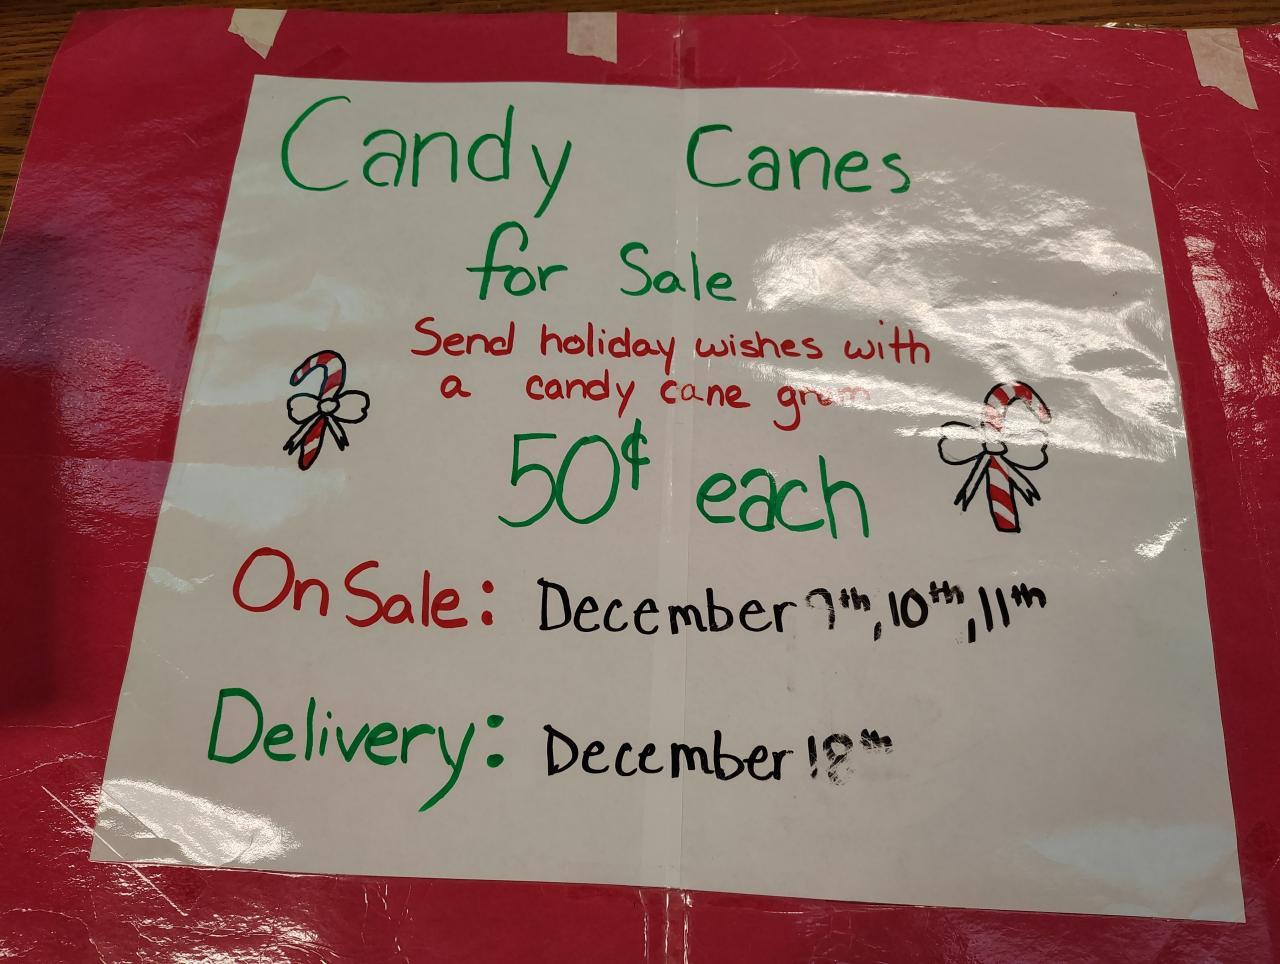 Candy Canes
for Sale
Send holiday wishes with
a candy cane gram
50¢ each
On Sale: December 9th, 10th, 11th
Delivery: December 18th